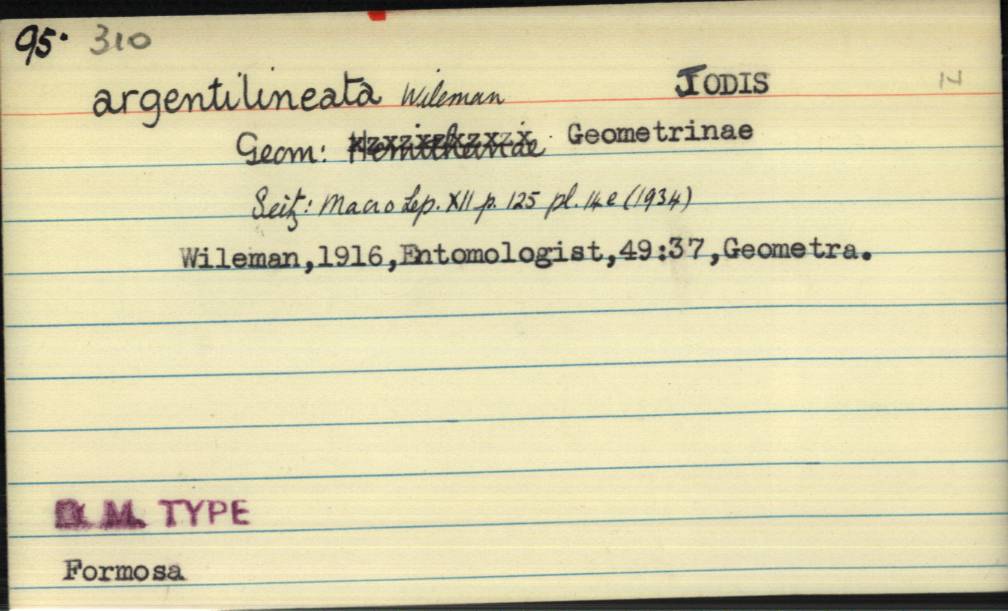 95. 310
argentilineata Wileman JODIS 14
Geom: Hemitheinae Geometrinae
Seitz: Macro Lep. XII p. 125 pl. 14e (1934)
Wileman,1916,Entomologist,49:37,Geometra.
B. M. TYPE
Formosa